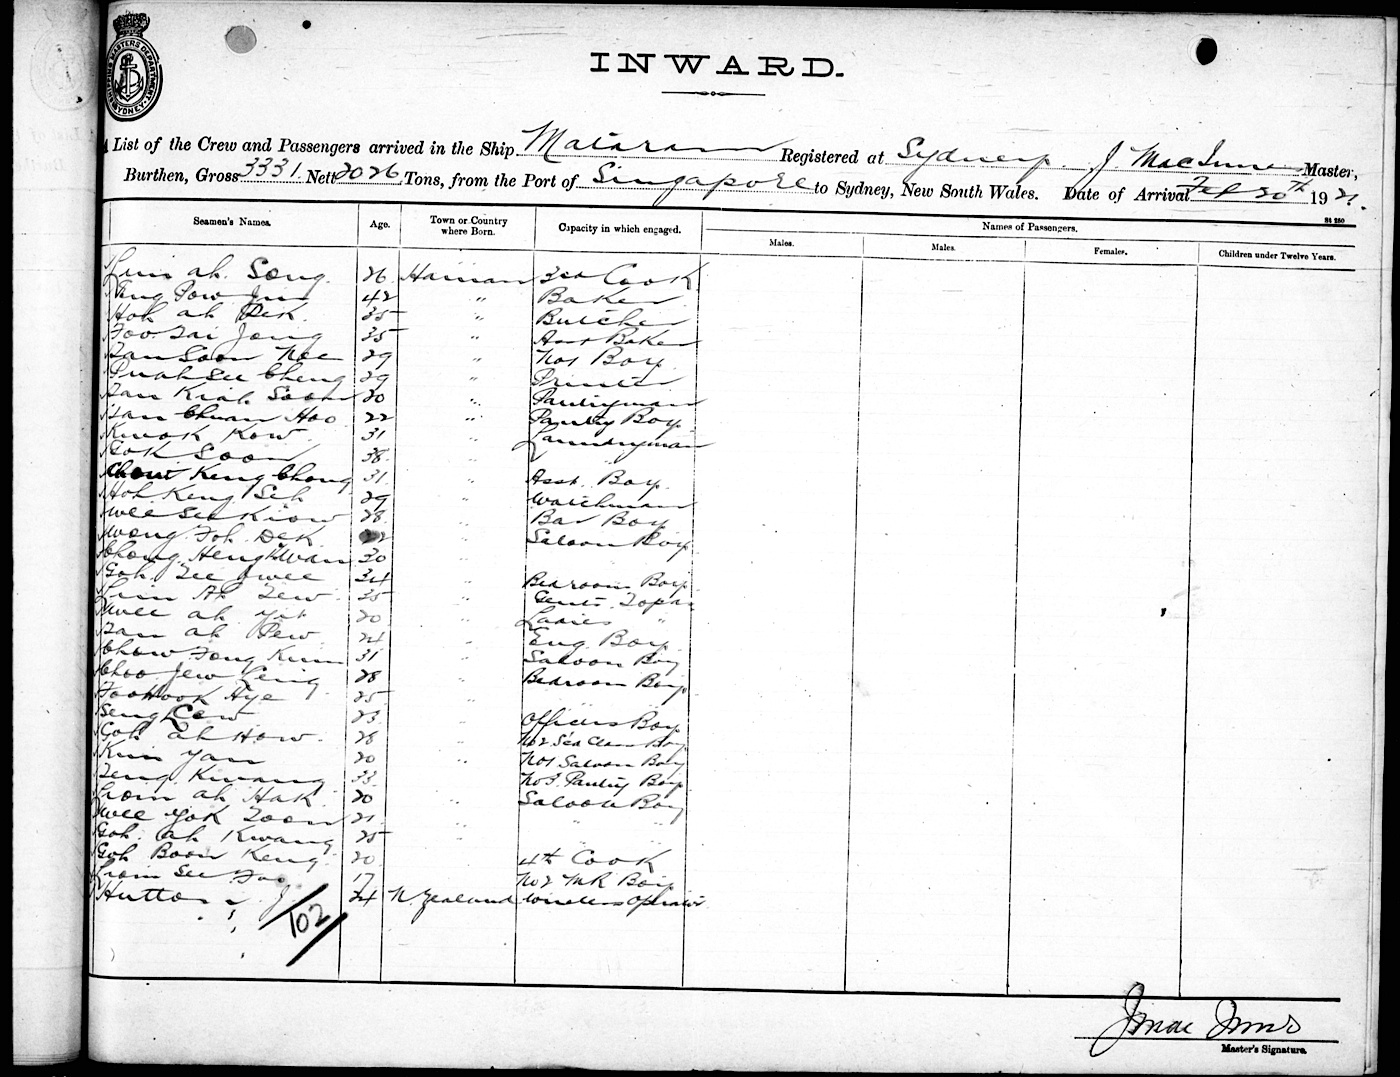 SHIPPING MASTERS DEPARTMENT SYDNEY
INWARD.
A List of the Crew and Passengers arrived in the Ship Mataram Registered at Sydney J MacInnes Master,
Burthen, Gross 3331 Nett 2026 Tons, from the Port of Singapore to Sydney, New South Wales. Date of Arrival Feb 20th 1921.
St 250
Seamen's Names. Age. Town or Country where Born. Capacity in which engaged. Names of Passengers.
Males. Males. Females. Children under Twelve Years.
Lim ah Song 26 Hainan 3rd Cook
42 " Baker
Hoh ah Dek 35 " Butcher
Foo Tai Jong 35 " Asst Baker
Tan Soon 29 " No1 Boy
Puah See Cheng 29 " Printer
Tan Kiah Soon 20 " Pantryman
Tan Chuan Hoo 22 " Pantry Boy
Kwok Kow 31 " Laundryman
Gok Soon 38 "
Keng Chong 31 " Asst. Boy
Hoh Keng Seh 29 " Watchman
Wee See Kiow 28 " Bar Boy
Wong Foh Dek " Saloon Boy
Chong Heng Kwan 30 " "
Goh Tee Swee 34 " Bedroom Boy
Lim Ah Tew 35 " Gents Topas
Wee ah 20 " Ladies "
Tan ah Pew 24 " Eng. Boy
Chow Fong Kum 31 " Saloon Boy
Choo Jew 28 " Bedroom Boy
Foo Hook Hye 25 " "
Seng Lew 23 " Officers Boy
Goh ah How 28 " No2 Boy
Kim Yan 20 " No1 Saloon Boy
Kwang 33 No3 Pantry Boy
ah Hak 20 " Saloon Boy
Wee Yok Toon 21 " "
Goh ah Kwang 25 " "
Goh Boon Keng 20 " 4th Cook
See Foo 17 No2 MR Boy
Hutton J 24 N Zealand Wireless Operator
102
J MacInnes
Master's Signature.